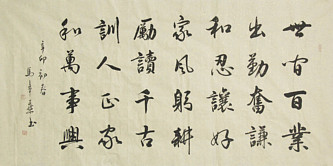 世间百業
出勤奮謙
和忍讓好
家風躬耕
勵讀千古
訓人正家
和萬事興
辛卯初春
馬